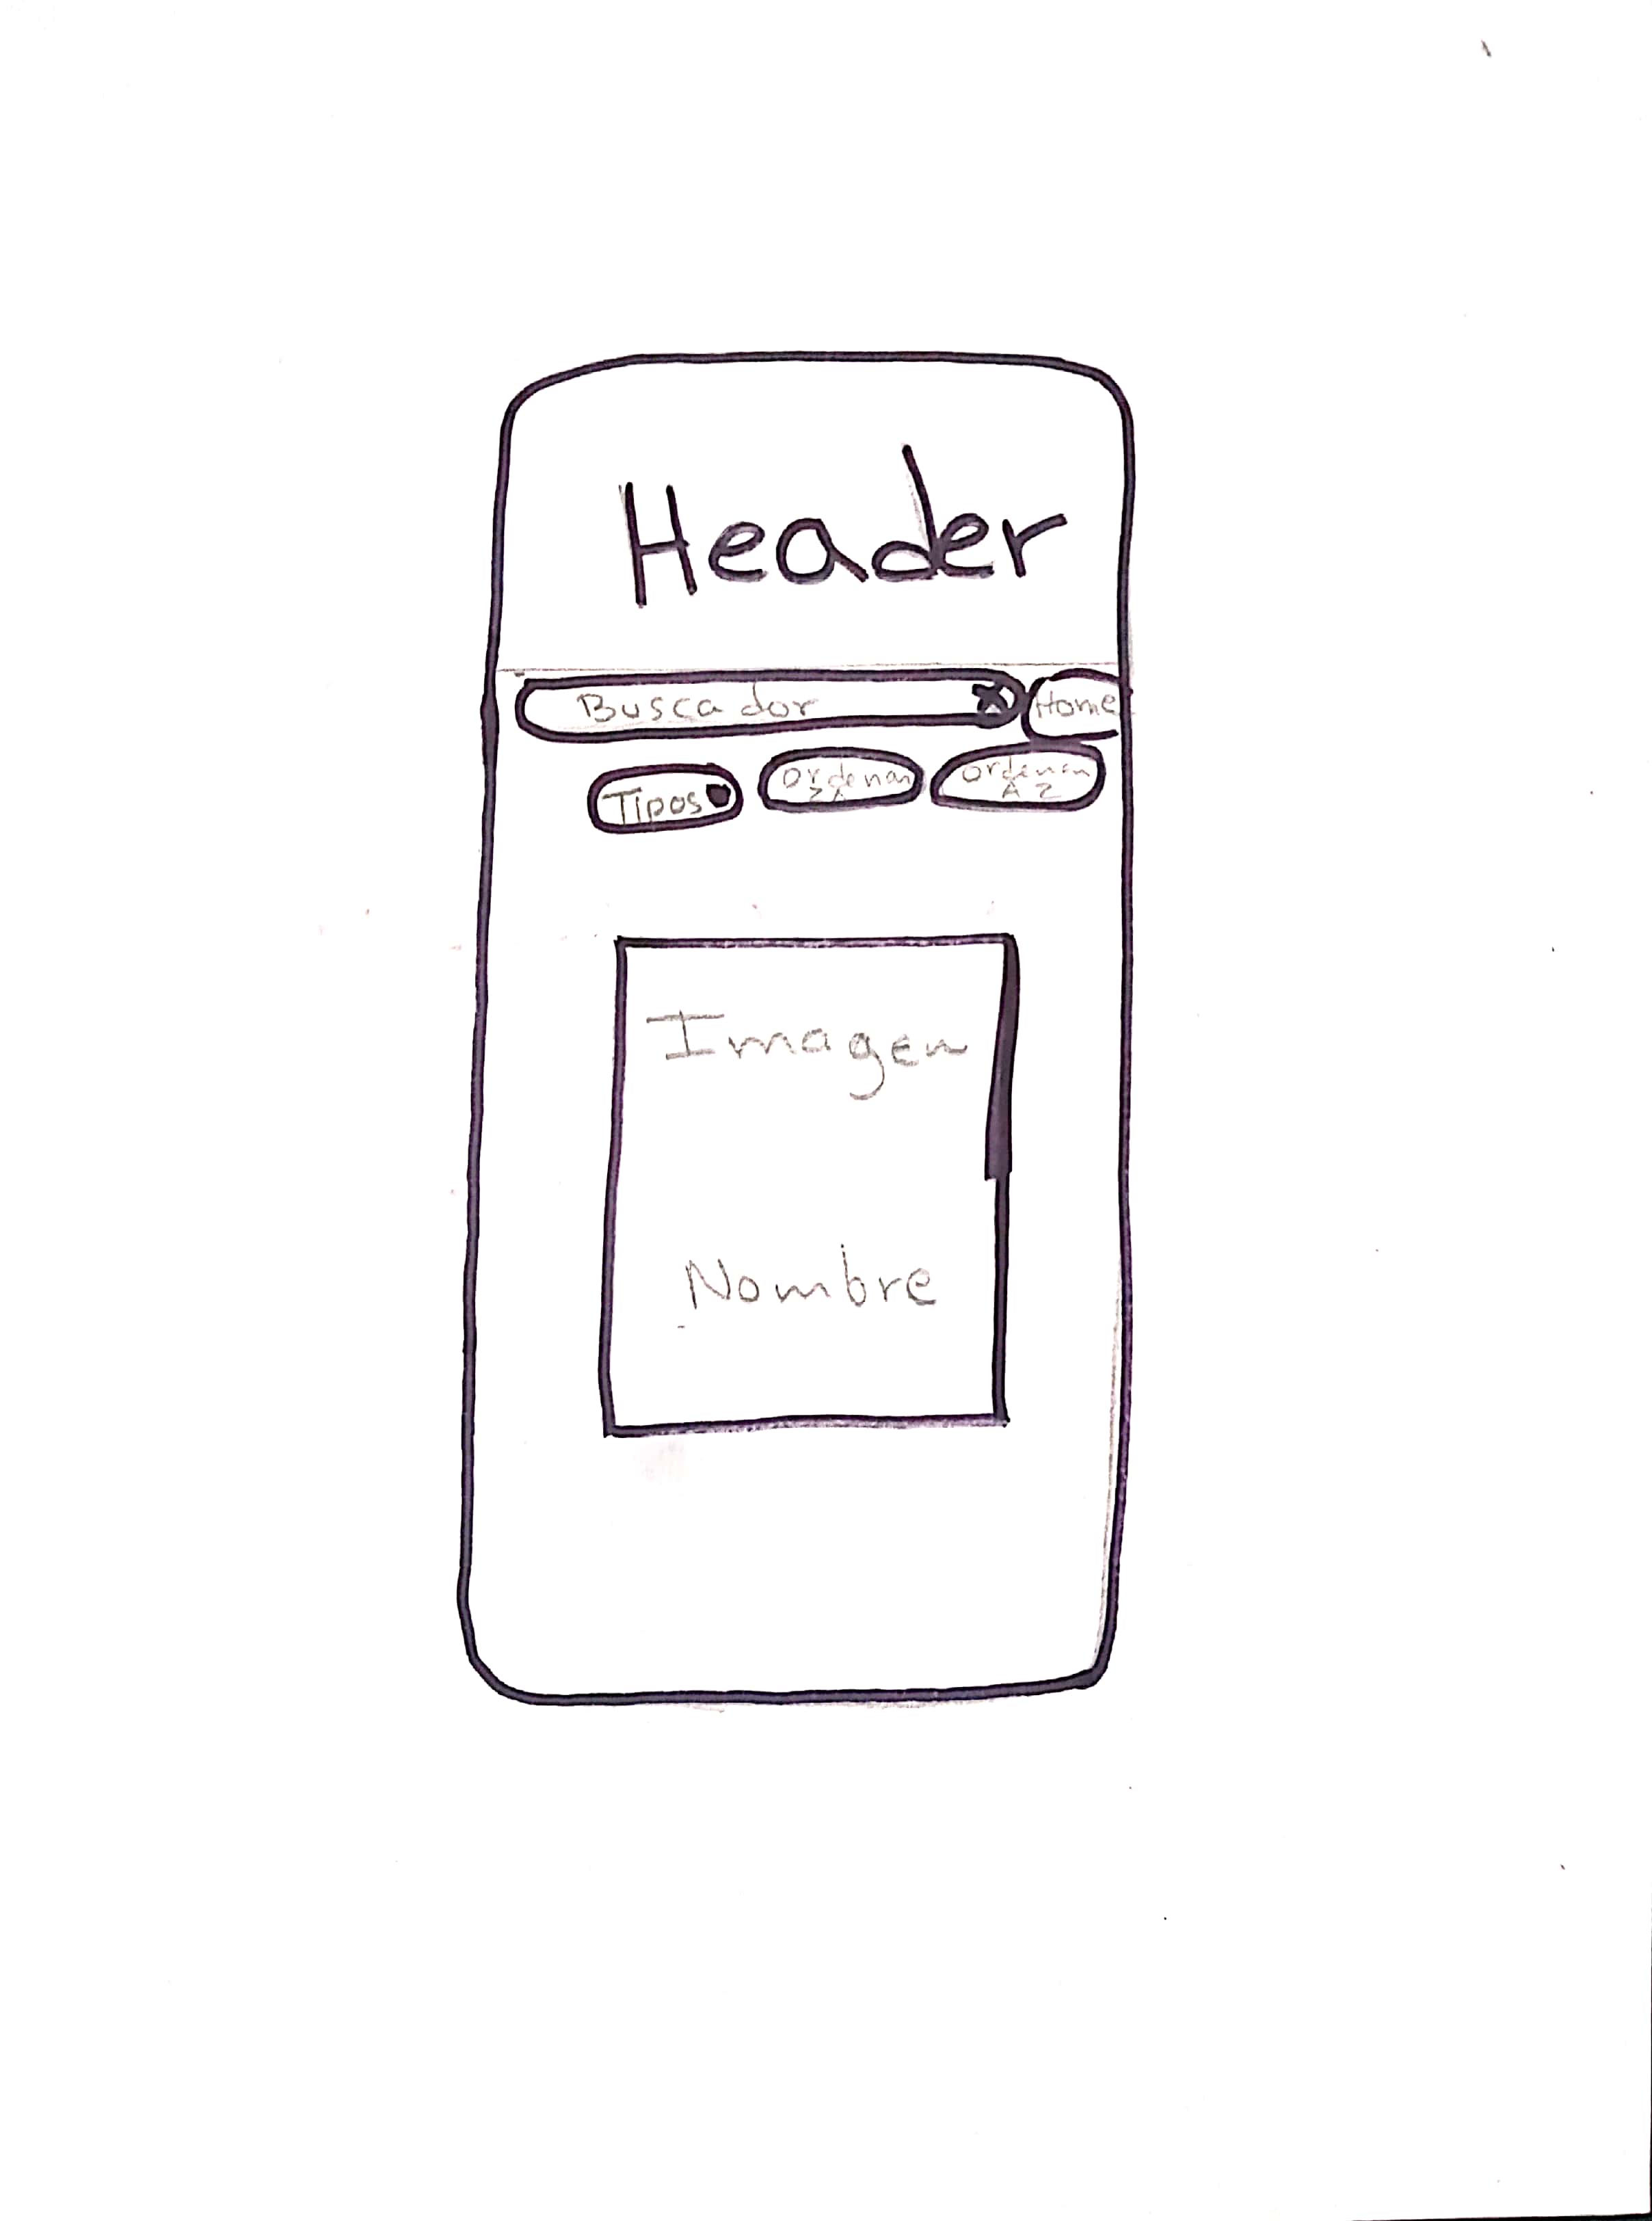 Header
Buscador X Home
Tipos Ordenar Ordenar
ZA AZ
Imagen
Nombre